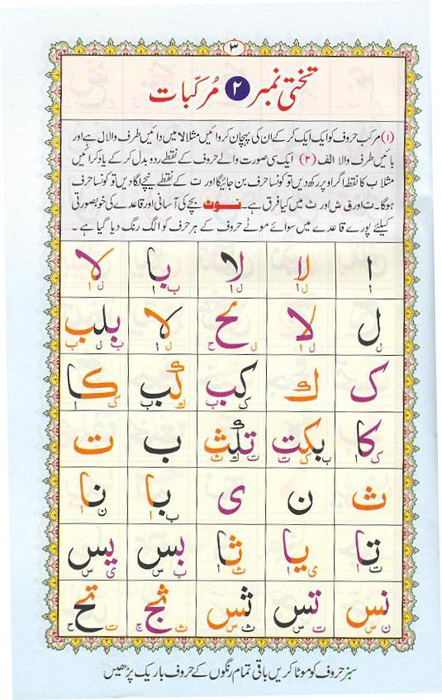 ۳
تختی نمبر ۲ مُرکّبات
(۱) مرکب حروف کو ایک ایک کر کے ان کی پہچان کروائیں مثلا لا میں دائیں طرف والا ل ہے اور
بائیں طرف والا الف (۲) ایک سی صورت والے حروف کے نقطے ردوبدل کر کے یاد کرائیں
مثلا ب کا نقطہ اگر اوپر رکھ دیں تو کونسا حرف بن جائیگا اور ت کے نقطے نیچے لگا دیں تو کونسا حرف
ہوگا۔ ت اور ق ش اور ث میں کیا فرق ہے۔ نوٹ بچے کی آسانی اور قاعدے کی خوبصورتی
کیلئے پورے قاعدے میں سوائے موٹے حروف کے ہر حرف کو الگ رنگ دیا گیا ہے۔
ا لا لا با لا
ل لا لح لا بلب
ک ك کب ککب کا
کا بکت تکث ب ت
ث ن ی با نا
تا یا ثا بس یس
نس تس ثس ثج تح
سبز حروف کو موٹا کریں باقی تمام رنگوں کے حروف باریک پڑھیں